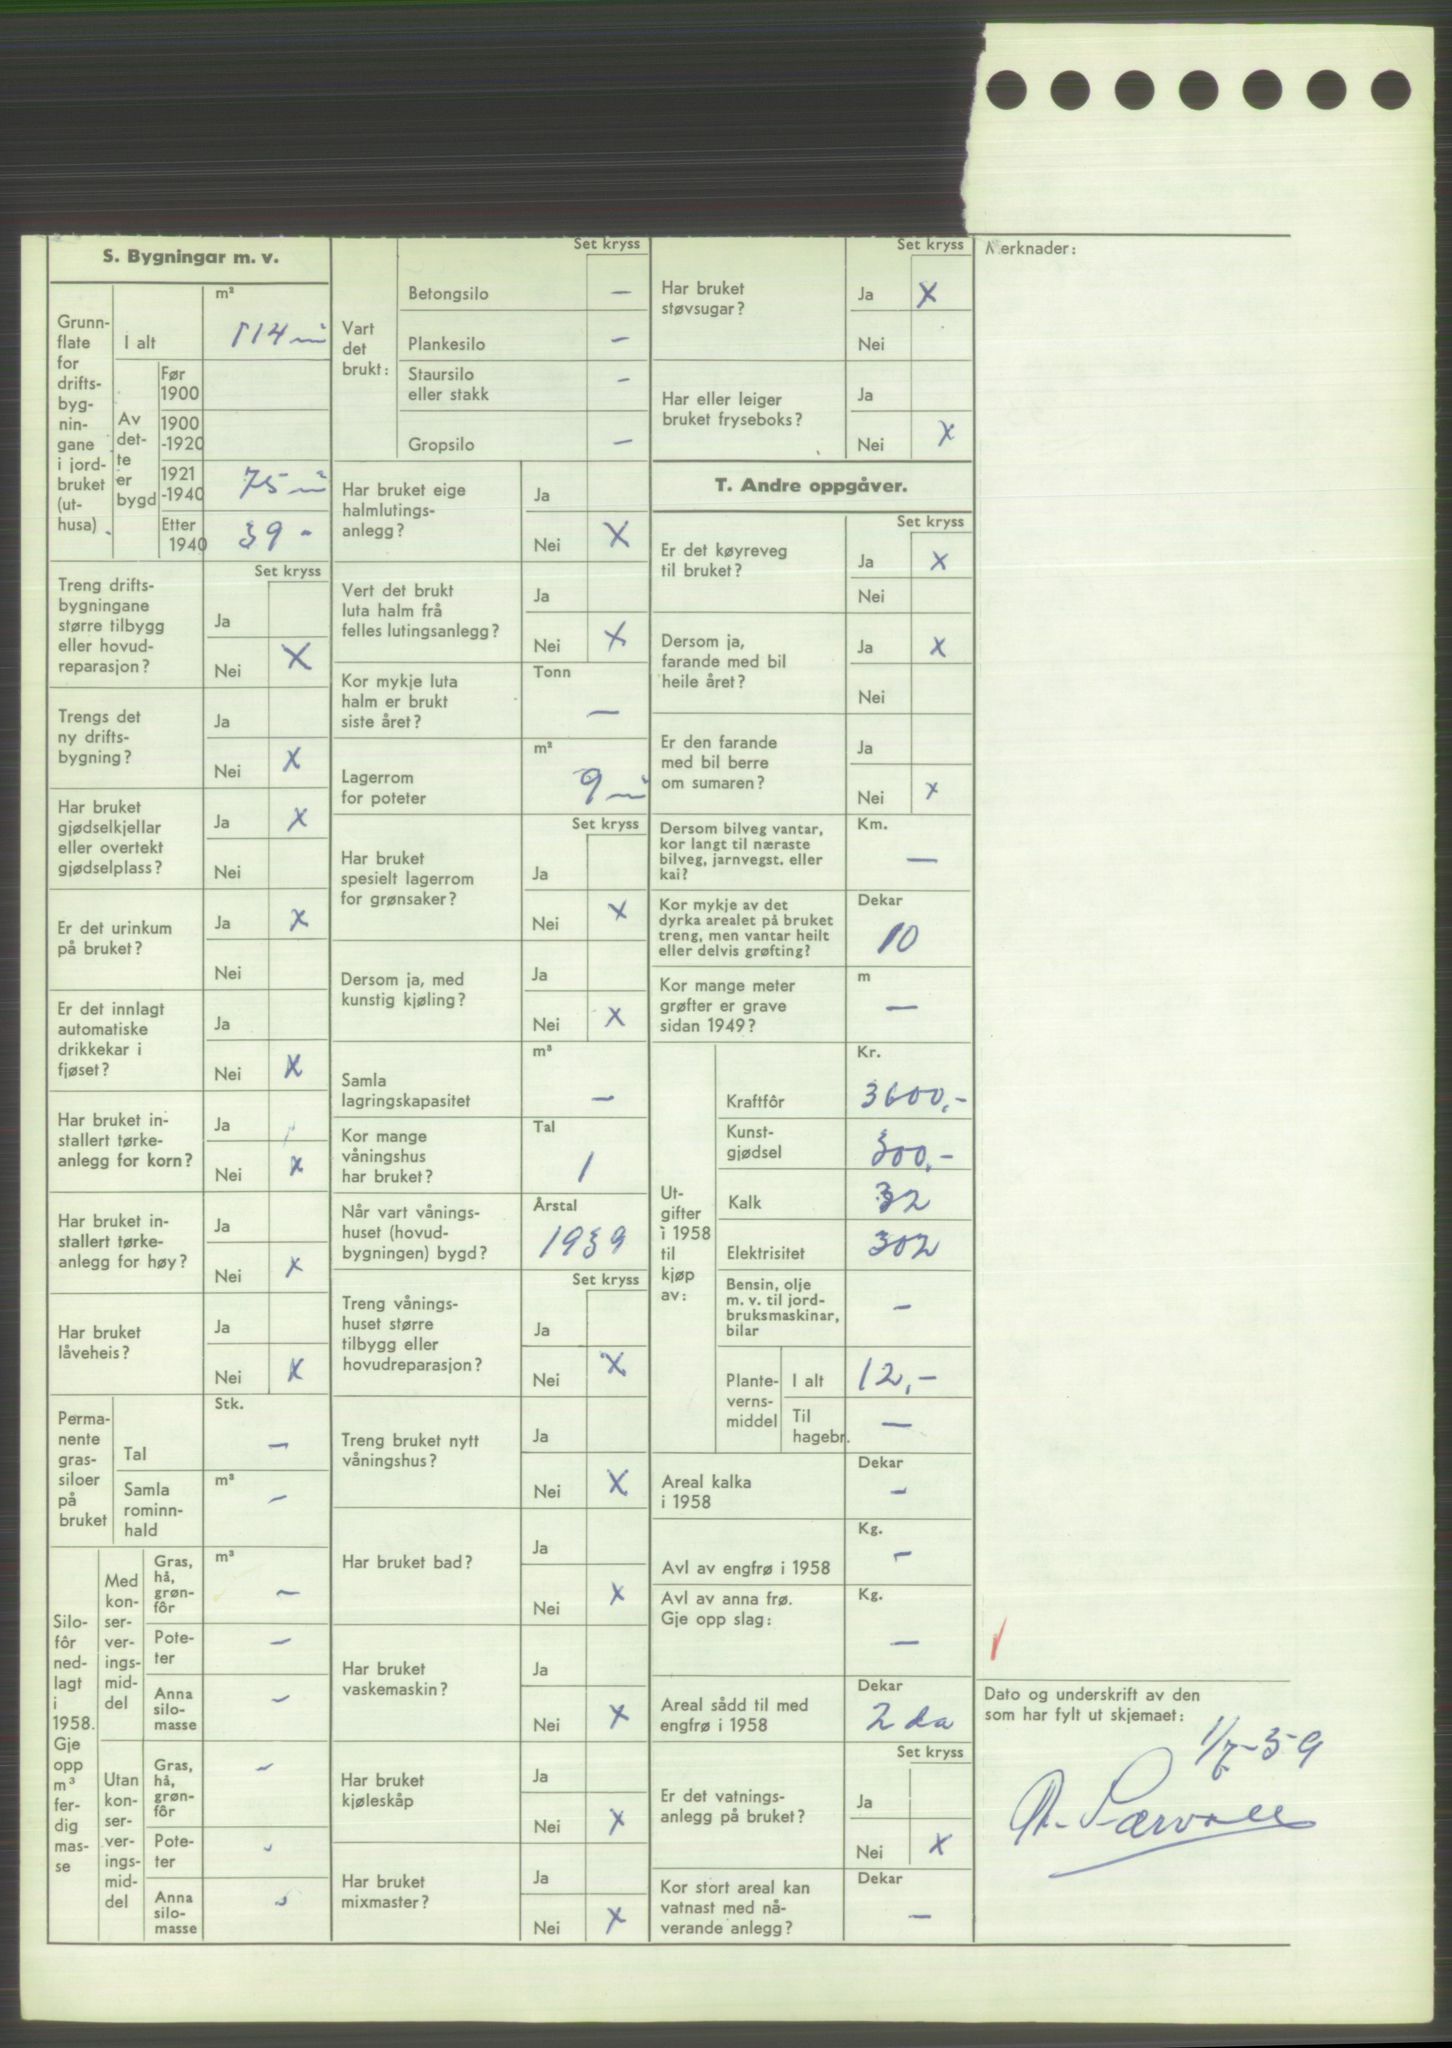 S. Bygningar m. v.
Grunn-
flate
for
drifts-
byg-
nin-
gane
i jord-
bruket
(ut-
husa)
I alt
m² 114 m²
Av
det-
te
er
bygd
Før
1900
1900
-1920
1921
-1940
75 m²
Etter
1940
39 -
Set kryss
Treng drifts-
bygningane
større tilbygg
eller hovud-
reparasjon?
Ja
Nei X
Trengs det
ny drifts-
bygning?
Ja
Nei X
Har bruket
gjødselkjellar
eller overtekt
gjødselplass?
Ja X
Nei
Er det urinkum
på bruket?
Ja X
Nei
Er det innlagt
automatiske
drikkekar i
fjøset?
Ja
Nei X
Har bruket in-
stallert tørke-
anlegg for korn?
Ja
Nei X
Har bruket in-
stallert tørke-
anlegg for høy?
Ja
Nei X
Har bruket
låveheis?
Ja
Nei X
Perma-
nente
gras-
siloer
på
bruket
Tal
Stk. —
Samla
rominn-
hald
m³ —
Silo-
fôr
ned-
lagt
i
1958.
Gje
opp
m³
fer-
dig
mas-
se
Med
kon-
ser-
ver-
ings-
mid-
del
Gras,
hå,
grøn-
fôr
m³ —
Pote-
ter
—
Anna
silo-
masse
—
Utan
kon-
ser-
ver-
ings-
mid-
del
Gras,
hå,
grøn-
fôr
—
Pote-
ter
-
Anna
silo-
masse
-
Set kryss
Vart
det
brukt:
Betongsilo —
Plankesilo —
Staursilo
eller stakk
—
Gropsilo —
Har bruket eige
halmlutings-
anlegg?
Ja
Nei X
Vert det brukt
luta halm frå
felles lutingsanlegg?
Ja
Nei X
Kor mykje luta
halm er brukt
siste året?
Tonn
—
Lagerrom
for poteter
m²
9 m²
Set kryss
Har bruket
spesielt lagerrom
for grønsaker?
Ja
Nei X
Dersom ja, med
kunstig kjøling?
Ja
Nei X
Samla
lagringskapasitet
m³
—
Kor mange
våningshus
har bruket?
Tal
1
Når vart vånings-
huset (hovud-
bygningen) bygd?
Årstal
1939
Set kryss
Treng vånings-
huset større
tilbygg eller
hovudreparasjon?
Ja
Nei X
Treng bruket nytt
våningshus?
Ja
Nei X
Har bruket bad?
Ja
Nei X
Har bruket
vaskemaskin?
Ja
Nei X
Har bruket
kjøleskåp
Ja
Nei X
Har bruket
mixmaster?
Ja
Nei X
Set kryss
Har bruket
støvsugar?
Ja X
Nei
Har eller leiger
bruket fryseboks?
Ja
Nei X
T. Andre oppgåver.
Set kryss
Er det køyreveg
til bruket?
Ja X
Nei
Dersom ja,
farande med bil
heile året?
Ja X
Nei
Er den farande
med bil berre
om sumaren?
Ja
Nei X
Dersom bilveg vantar,
kor langt til næraste
bilveg, jarnvegst. eller
kai?
Km.
—
Kor mykje av det
dyrka arealet på bruket
treng, men vantar heilt
eller delvis grøfting?
Dekar
10
Kor mange meter
grøfter er grave
sidan 1949?
m
—
Ut-
gifter
i 1958
til
kjøp
av:
Kr.
Kraftfôr 3600,-
Kunst-
gjødsel
300,-
Kalk 32
Elektrisitet 302
Bensin, olje
m. v. til jord-
bruksmaskinar,
bilar
—
Plante-
verns-
middel
I alt 12,-
Til
hagebr.
—
Areal kalka
i 1958
Dekar
—
Avl av engfrø i 1958
Kg.
—
Avl av anna frø.
Gje opp slag:
Kg.
—
Areal sådd til med
engfrø i 1958
Dekar
2 da
Set kryss
Er det vatnings-
anlegg på bruket?
Ja
Nei X
Kor stort areal kan
vatnast med nå-
verande anlegg?
Dekar
—
Merknader:
Dato og underskrift av den
som har fylt ut skjemaet:
1/7-59